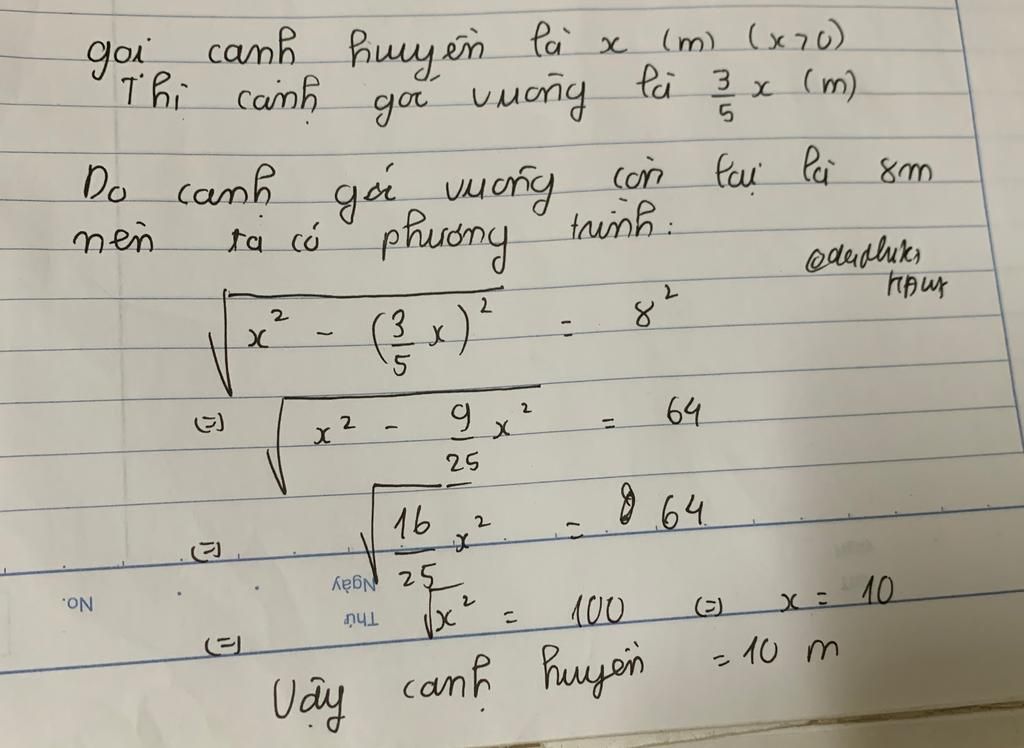 gọi cạnh huyền là x (m) (x>0)
Thì cạnh góc vuông là 3/5 x (m)
Do cạnh góc vuông còn lại là 8m
nên ta có phương trình:
√(x² - (3/5 x)²) = 8²
(=) √(x² - 9/25 x²) = 64
(=) √(16/25 x²) = 64
No. Ngày
Thứ
(=) √x² = 100 (=) x = 10
Vậy cạnh huyền = 10 m